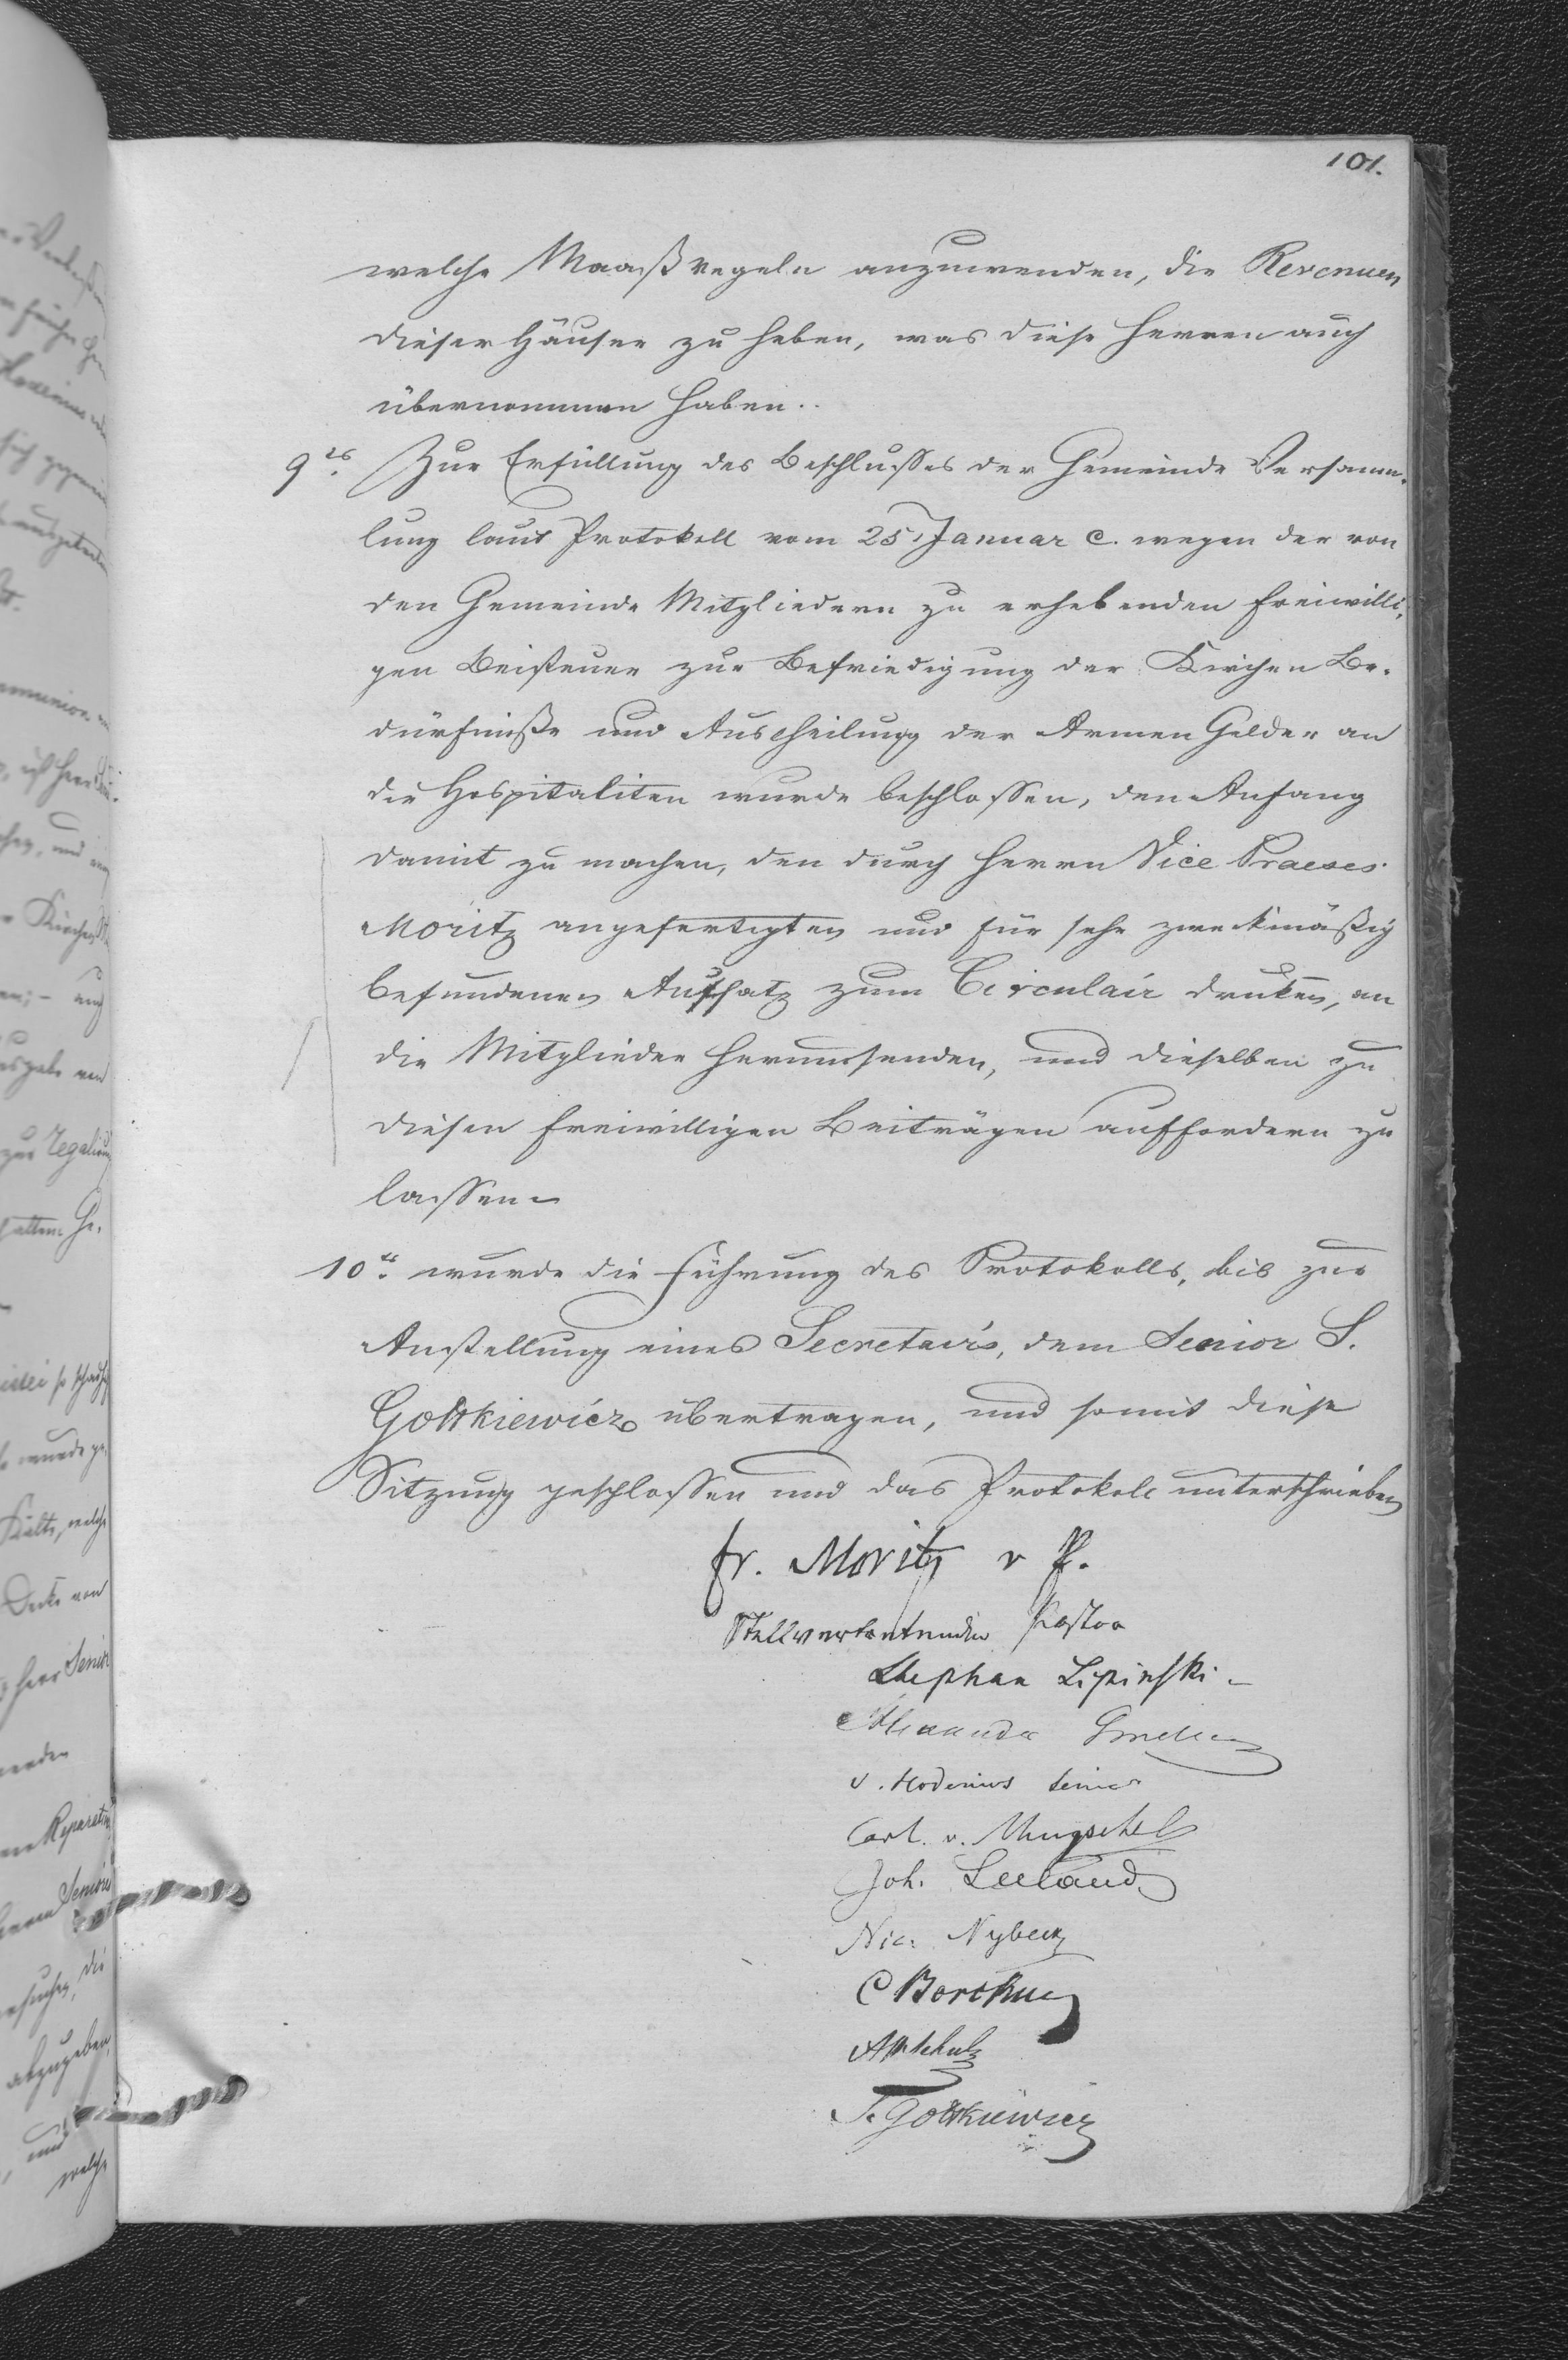 101.
welche Maaßregeln anzuwenden, die Revenuen
dieser Häuser zu heben, was diese Herren auch
übernommen haben..
9tes Zur Erfüllung des Beschlusses der Gemeinde Versamm-
lung laut Protokoll vom 25 Januar c. wegen der von
den Gemeinde Mitgliedern zu erhebenden freiwilli-
gen Beisteuer zur Befriedigung der Kirchen Be-
dürfniße und Austheilung der Armen Gelder an
die Hospitaliten wurde beschlossen, den Anfang
damit zu machen, den durch Herrn Vice Praeses
Moritz angefertigten und für sehr zweckmäßig
befundenen Aufsatz zum Circulair drucken, an
die Mitglieder herumsenden, und dieselben zu
diesen freiwilligen Beiträgen auffordern zu
lassen.
10tes wurde die Führung des Protokolls, bis zur
Anstellung eines Secretairs, dem Senior S.
Gottkiewicz übertragen, und somit diese
Sitzung geschlossen und das Protokoll unterschrieben
fr. Moritz v P.
Stellvertretender Pastor
Stephan Lipinski
Alexander
v. Hodenius Senior
Carl. v.
Joh. Leeland
Nic. Nybeck
C Borck
Schulz
S. Gottkiewicz